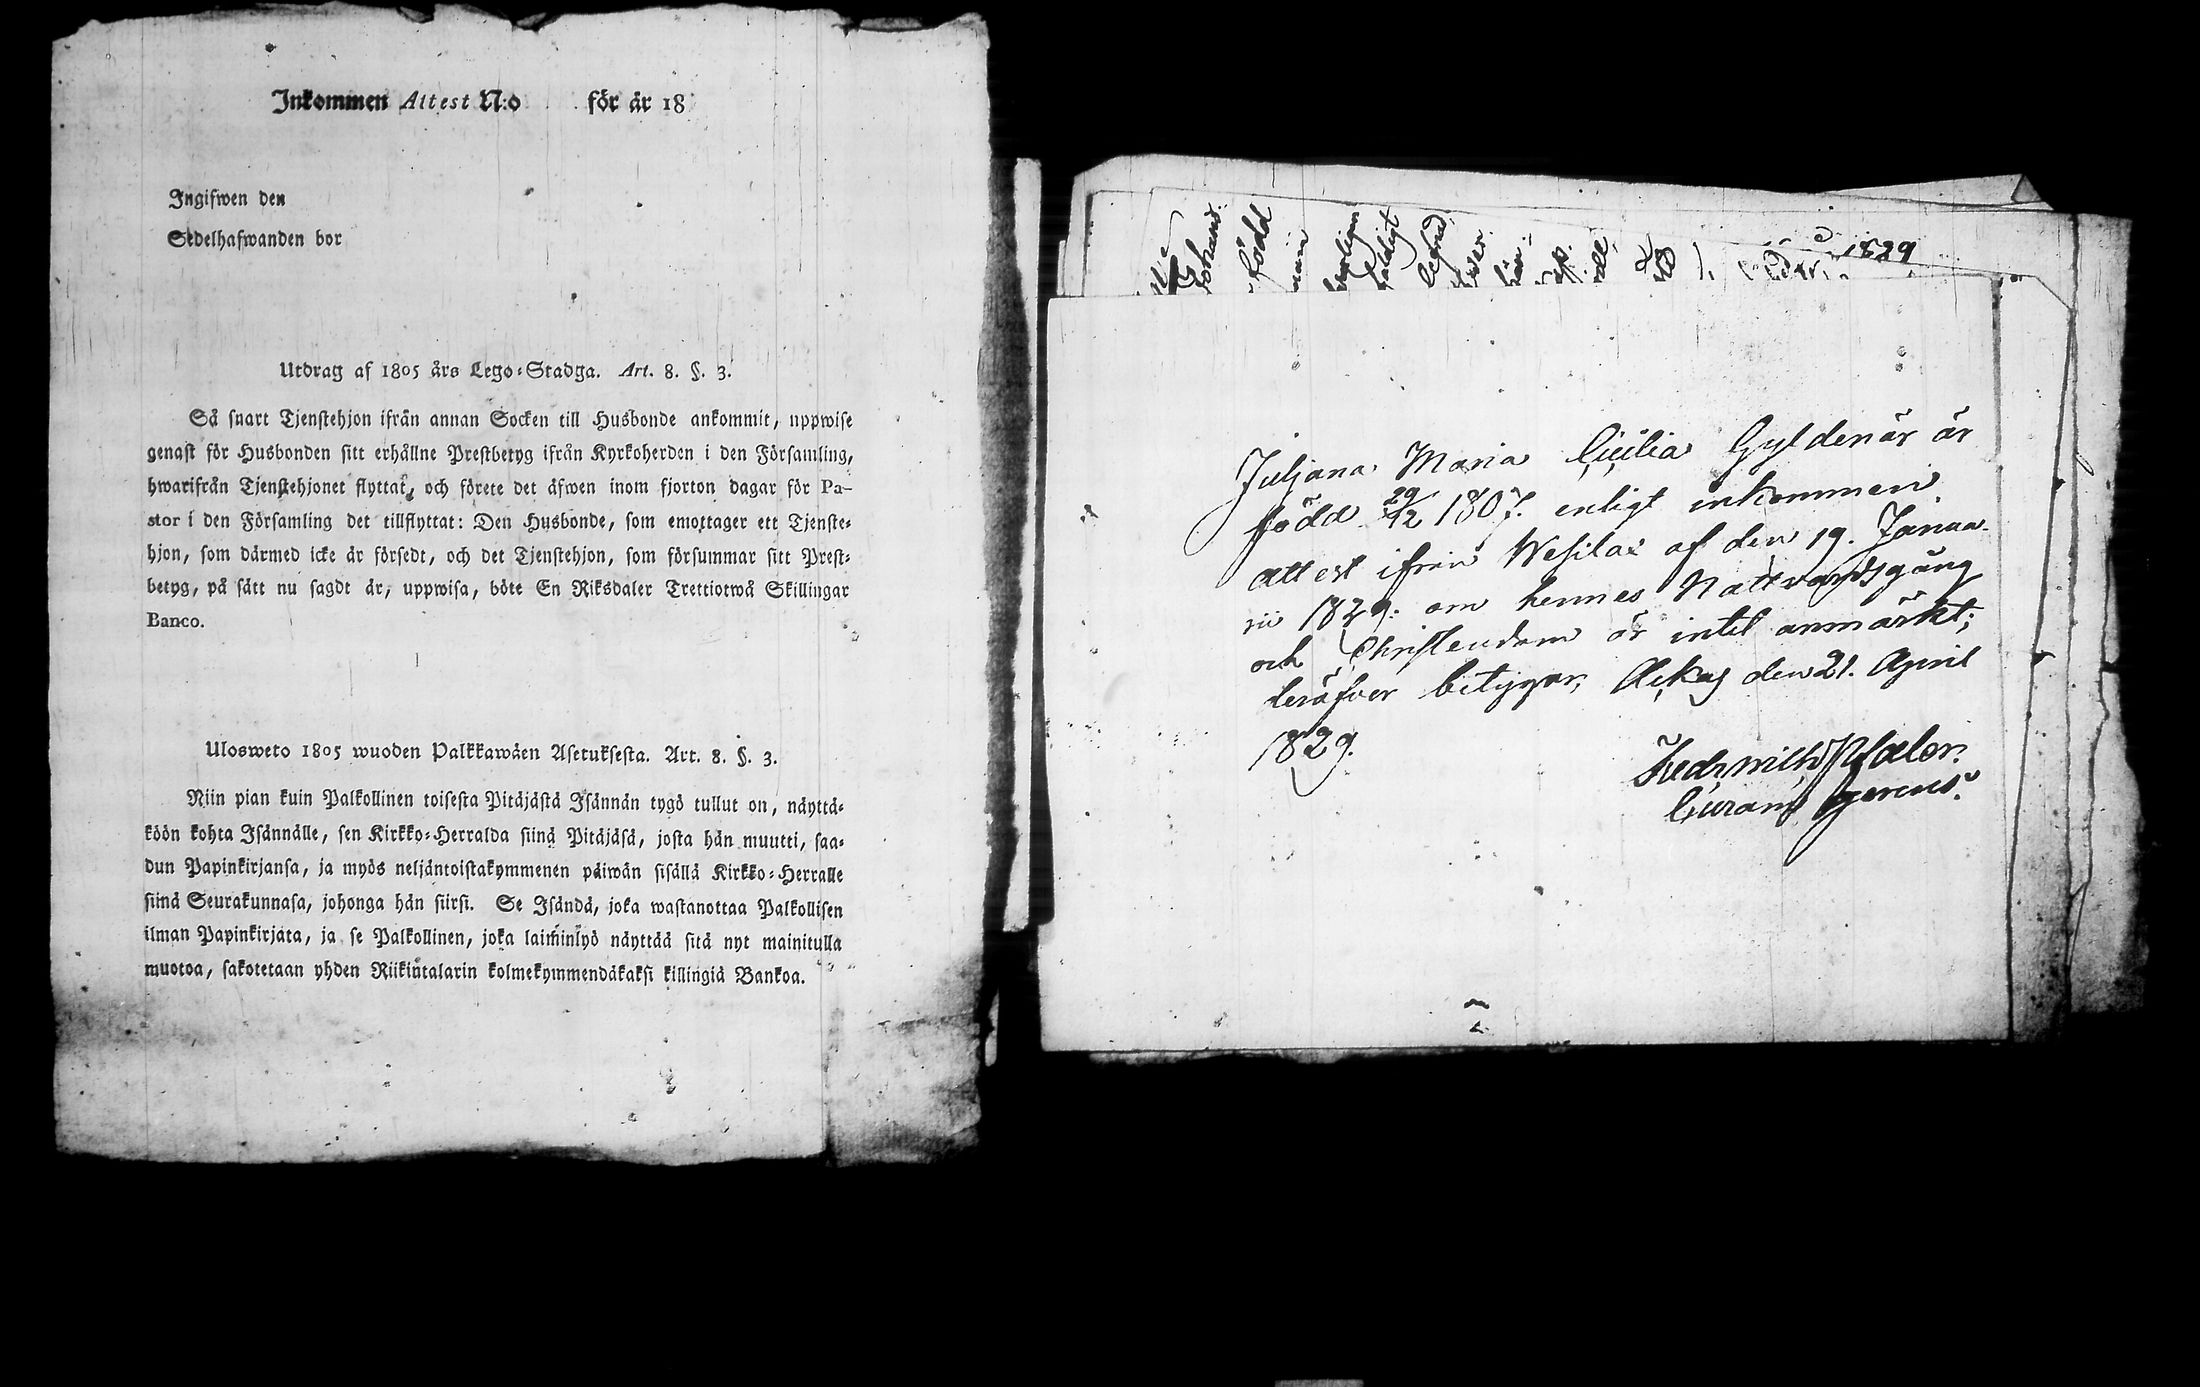 Inkommen Attest N:o för år 18
Ingifwen den
Sedelhafwanden bor
Utdrag af 1805 års Lego-Stadga. Art. 8. §. 3.
Så snart Tjenstehjon ifrån annan Socken till Husbonde ankommit, uppwise
genast för Husbonden sitt erhållne Prestbetyg ifrån Kyrkoherden i den Församling,
hwarifrån Tjenstehjonet flyttat, och förete det äfwen inom fjorton dagar för Pa-
stor i den Församling det tillflyttat: Den Husbonde, som emottager ett Tjenste-
hjon, som därmed icke är försedt, och det Tjenstehjon, som försummar sitt Prest-
betyg, på sätt nu sagdt är, uppwisa, böte En Riksdaler Trettiotwå Skillingar
Banco.
Ulosweto 1805 wuoden Palkkawäen Asetuksesta. Art. 8. §. 3.
Niin pian kuin Palkollinen toisesta Pitäjästä Isännän tygö tullut on, näyttä-
köön kohta Isännälle, sen Kirkko-Herralda siinä Pitäjäsä, josta hän muutti, saa-
dun Papinkirjansa, ja myös neljäntoistakymmenen päiwän sisällä Kirkko-Herralle
siinä Seurakunnasa, johonga hän siirsi. Se Isändä, joka wastanottaa Palkollisen
ilman Papinkirjata, ja se Palkollinen, joka laiminlyö näyttää sitä nyt mainitulla
muotoa, sakotetaan yhden Riikintalarin kolmekymmendäkaksi killingiä Bankoa.
Johans
född
1829
Juljana Maria Cicilia Gyldenär är
född 29/12 1807. enligt inkommen
attest ifrån Wesilax af den 19. Janua-
rii 1829. om hennes Nattvardsgång
och Christendom är intet anmärkt;
deröfver betygar, Ackas den 21. April
1829.
Curam gerens.